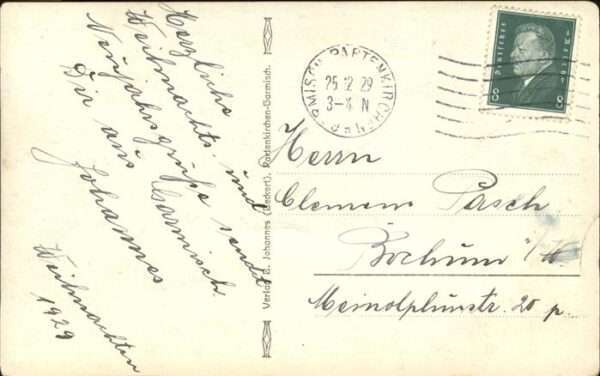 Herzliche
Weihnachts- und
Neujahrsgrüße sendet
Dir aus Garmisch
Johannes
Weihnachten
1929
Verlag B. Johannes (Beckert), Partenkirchen-Garmisch.
GARMISCH-PARTENKIRCHEN
25 12 29
3-4 N
Deutsches Reich
8 8
Herrn
Clemens Pasch
Bochum i/W.
Meinolphusstr. 20 p.